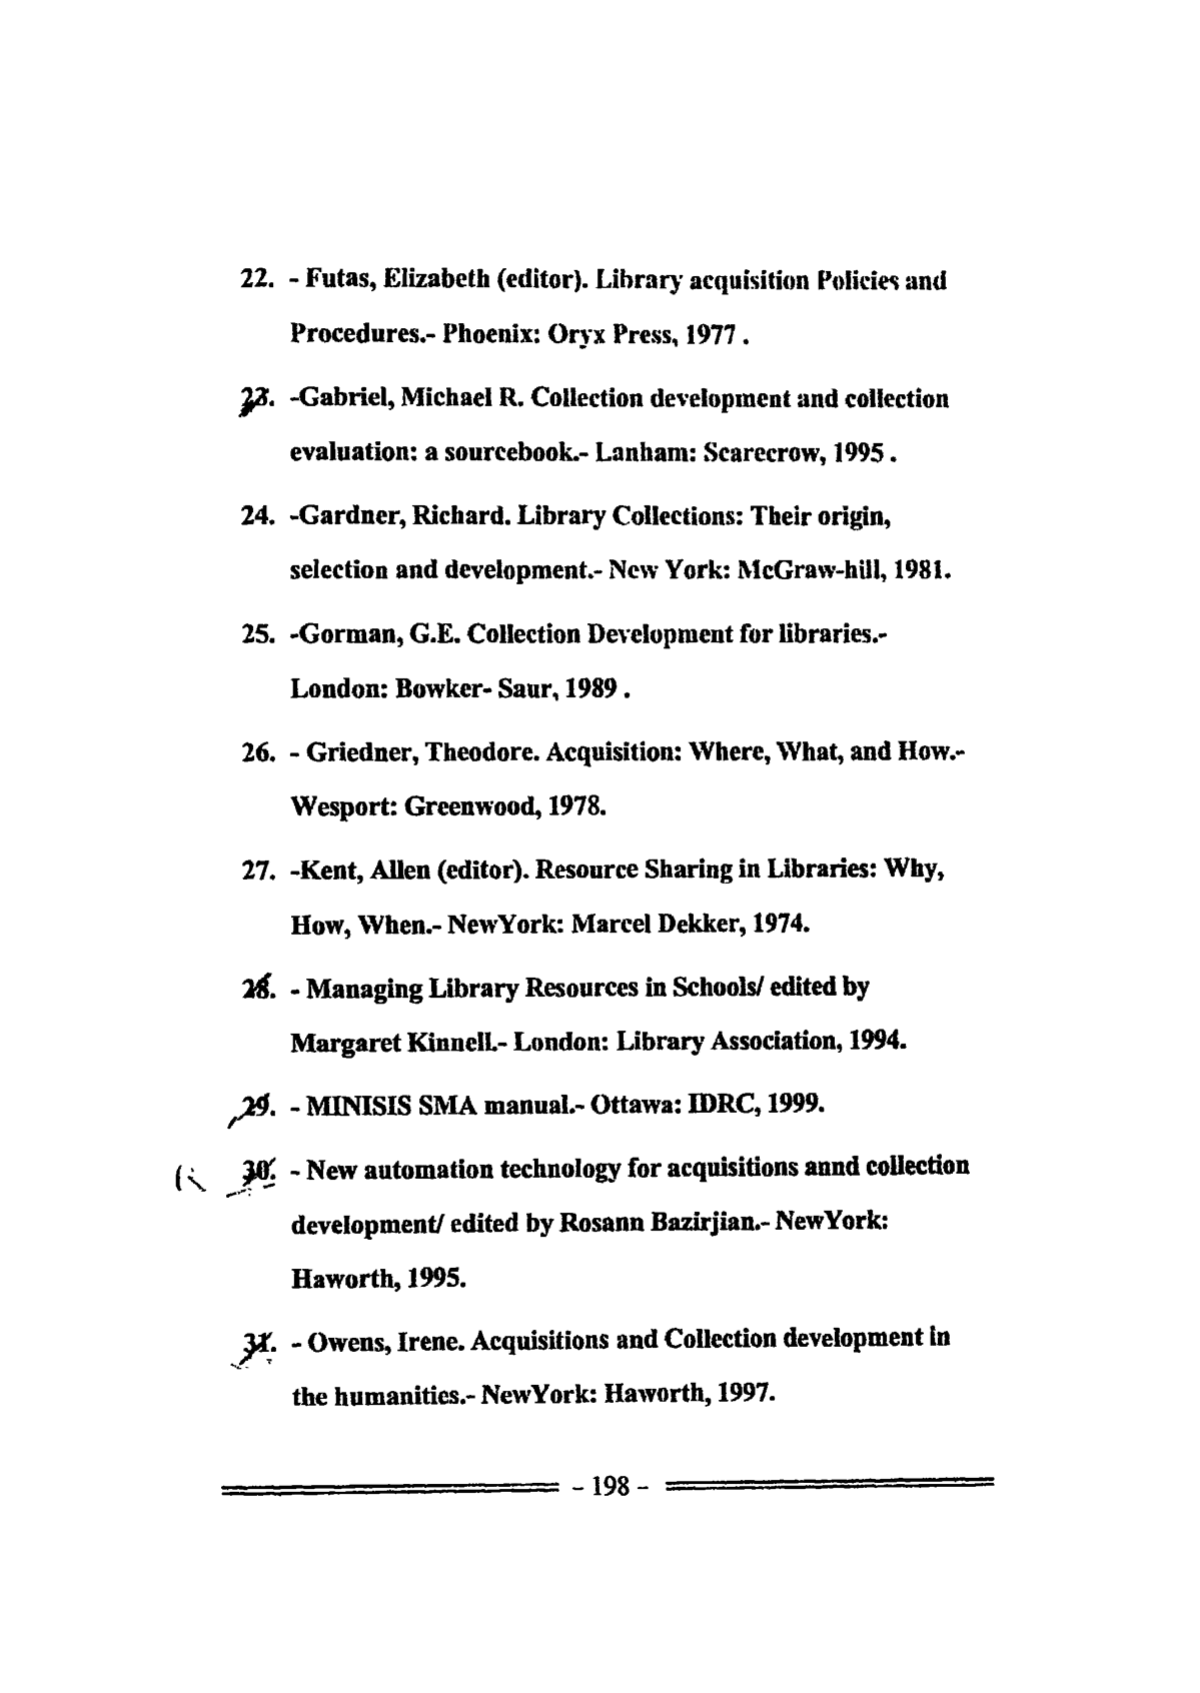 22. - Futas, Elizabeth (editor). Library acquisition Policies and
Procedures.- Phoenix: Oryx Press, 1977 .
23. -Gabriel, Michael R. Collection development and collection
evaluation: a sourcebook.- Lanham: Scarecrow, 1995 .
24. -Gardner, Richard. Library Collections: Their origin,
selection and development.- New York: McGraw-hill, 1981.
25. -Gorman, G.E. Collection Development for libraries.-
London: Bowker- Saur, 1989 .
26. - Griedner, Theodore. Acquisition: Where, What, and How.-
Wesport: Greenwood, 1978.
27. -Kent, Allen (editor). Resource Sharing in Libraries: Why,
How, When.- NewYork: Marcel Dekker, 1974.
28. - Managing Library Resources in Schools/ edited by
Margaret Kinnell.- London: Library Association, 1994.
29. - MINISIS SMA manual.- Ottawa: IDRC, 1999.
30. - New automation technology for acquisitions annd collection
development/ edited by Rosann Bazirjian.- NewYork:
Haworth, 1995.
31. - Owens, Irene. Acquisitions and Collection development in
the humanities.- NewYork: Haworth, 1997.
- 198 -